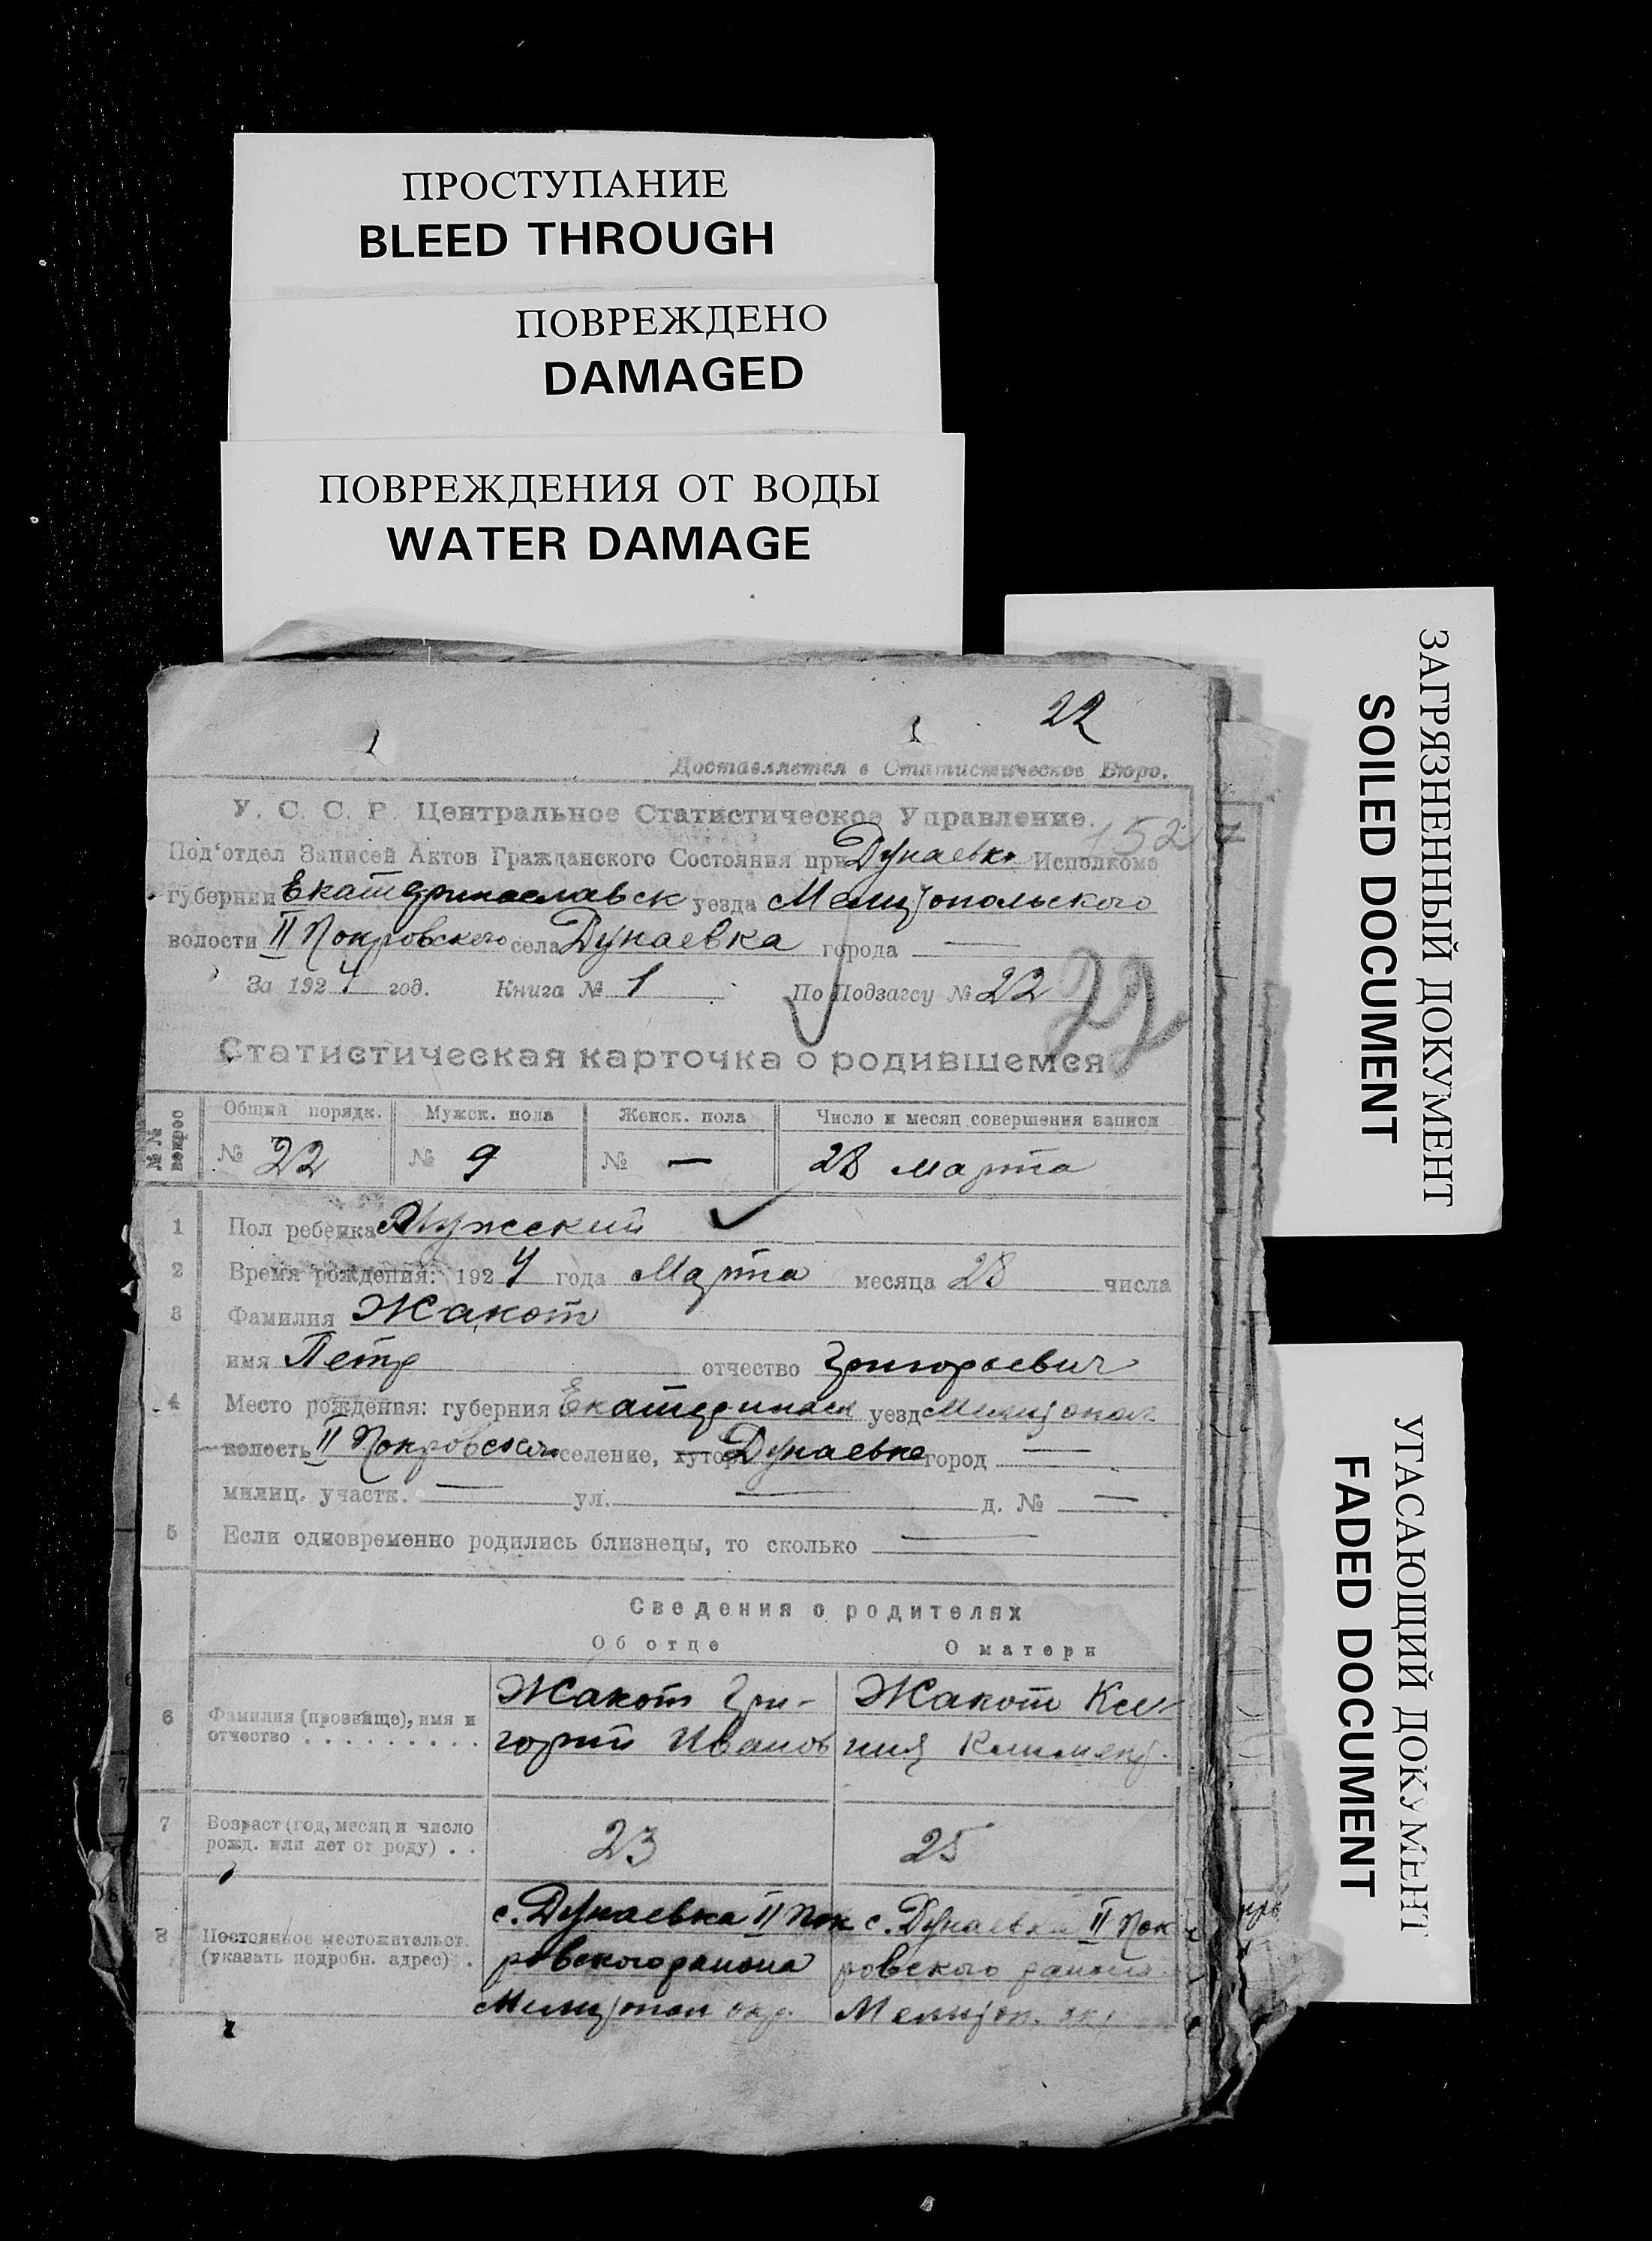 ПРОСТУПАНИЕ
BLEED THROUGH
ПОВРЕЖДЕНО
DAMAGED
ПОВРЕЖДЕНИЯ ОТ ВОДЫ
WATER DAMAGE
ЗАГРЯЗНЕННЫЙ ДОКУМЕНТ
SOILED DOCUMENT
УГАСАЮЩИЙ ДОКУМЕНТ
FADED DOCUMENT
22
Доставляется в Статистическое Бюро.
У. С. С. Р. Центральное Статистическое Управление.
152
Под'отдел Записей Актов Гражданского Состояния при Дунаевк. Исполкоме
губернии Екатеринославск уезда Мелитопольского
волости II Покровского села Дунаевка города —
За 1924 год. Книга № 1 По Подзагсу № 22
22
Статистическая карточка о родившемся
№№ вопрос Общий порядк. Мужск. пола Женск. пола Число и месяц совершения записи
№ 22 № 9 № — 28 марта
1 Пол ребенка Мужский
2 Время рождения: 1924 года Марта месяца 28 числа
3 Фамилия Жакот
имя Петр отчество Григорьевич
4 Место рождения: губерния Екатеринослав уезд Мелитопол.
волость II Покровская селение, хутор Дунаевка город —
милиц. участк. — ул. — д. № —
5 Если одновременно родились близнецы, то сколько —
Сведения о родителях
Об отце О матери
6 Фамилия (прозвище), имя и отчество . . . . . . . . .
Жакот Гри-
горий Иванов
Жакот Ксе-
ния Климент.
7 Возраст (год, месяц и число рожд. или лет от роду) . .
23 25
8 Постоянное местожительст. (указать подробн. адрес) .
с. Дунаевка II Пок
ровского района
Мелитопол окр.
с. Дунаевка II Пок
ровского района
Мелитоп. окр